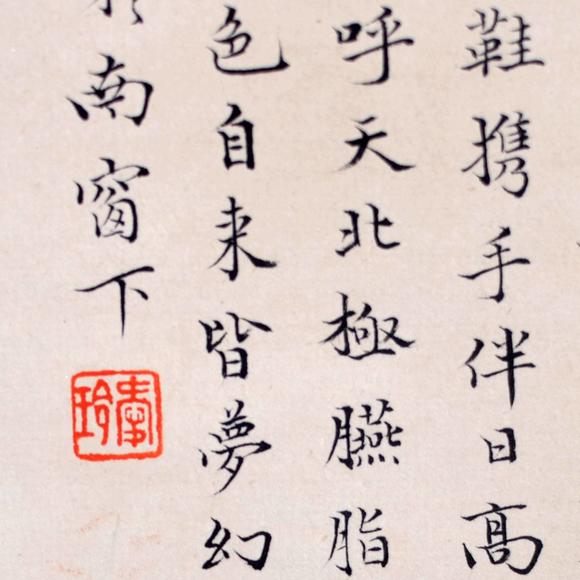 鞋携手伴日高
呼天北極臙脂
色自来皆夢幻
南窗下